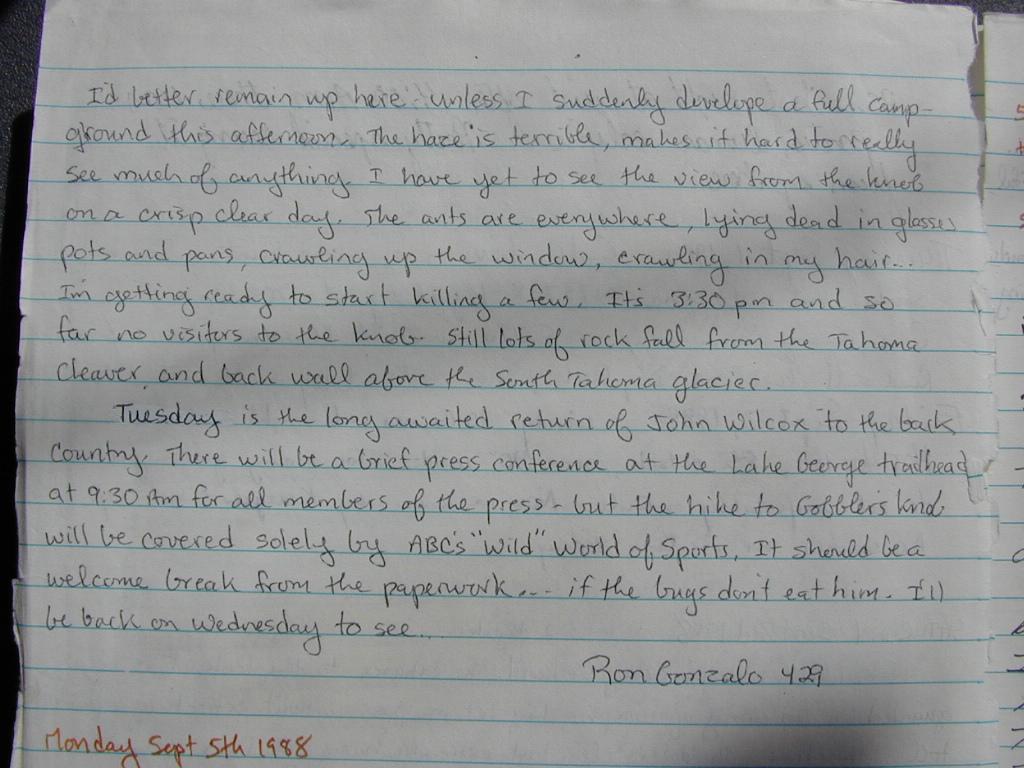 I'd better remain up here unless I suddenly develope a full camp-
ground this afternoon. The haze is terrible, makes it hard to really
see much of anything. I have yet to see the view from the knob
on a crisp clear day. The ants are everywhere, lying dead in glasses
pots and pans, crawling up the window, crawling in my hair...
I'm getting ready to start killing a few. It's 3:30 pm and so
far no visitors to the knob. Still lots of rock fall from the Tahoma
Cleaver and back wall above the South Tahoma glacier.
Tuesday is the long awaited return of John Wilcox to the back
country. There will be a brief press conference at the Lake George trailhead
at 9:30 Am for all members of the press - but the hike to Gobbler's Knob
will be covered solely by ABC's "Wild" World of Sports. It should be a
welcome break from the paperwork... if the bugs don't eat him. I'll
be back on Wednesday to see...
Ron Gonzalo 429
Monday Sept 5th 1988